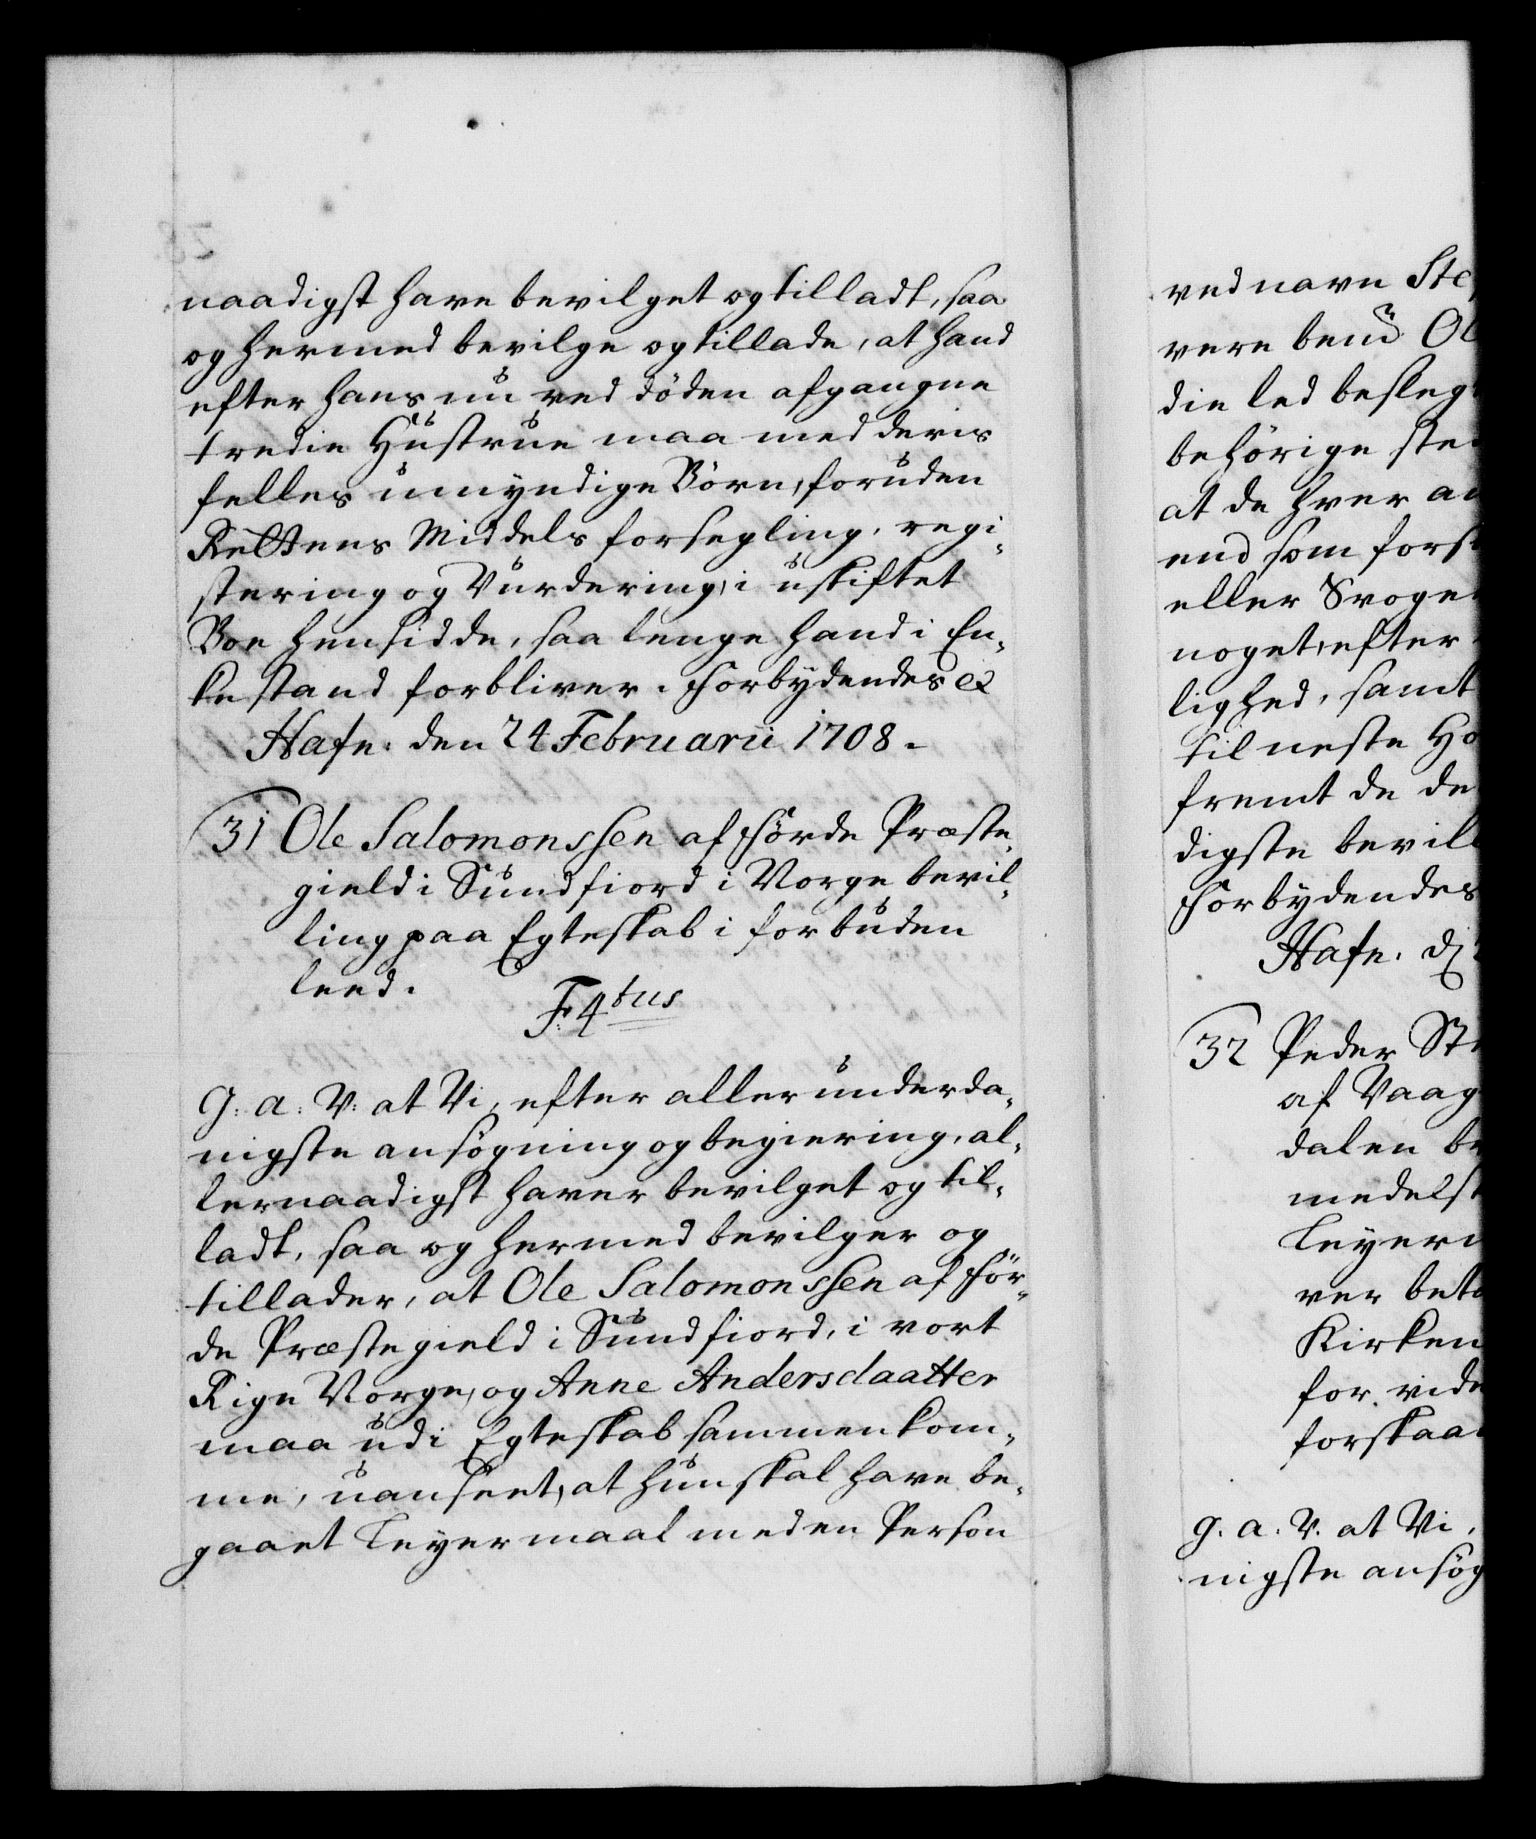 naadigst have bevilget og tilladt, saa
og hermed bevilge og tillade, at hand
efter hans nu ved döden afgangne
tredie Hustrue maa med deris
felles umyndige Börn, foruden
Rettens Middels forsegling, regi-
stering og Vurdering, i uskiftet
Boe hensidde, saa lenge hand i En-
kestand forbliver. Forbydendes etc
Hafn: den 24 Februarii 1708.
31 Ole Salomonssen af Förde Præste-
gield i Sundfiord i Norge bevil-
ling paa Egteskab i forbuden
leed.
F. 4tus
G: a: V: at Vi, efter allerunderda-
nigste ansögning og begiering, al-
lernaadigst haver bevilget og til-
ladt, saa og hermed bevilger og
tillader, at Ole Salomonssen af För-
de Præstegield i Sundfiord, i vort
Rige Norge, og Anne Andersdaatter
maa udi Egteskab sammenkom-
me, uanseet, at hun skal have be-
gaaet Leyermaal med en Person
ved navn Ste
vere bem Ol
die led besleg
behörige ste
at de hver an
end som fors
eller Svoger
noget, efter
lighed, samt
til neste Ho
fremt de de
digste bevil
Forbydendes
Hafn. d
32 Peder St
af Vaag
dalen be
medelst
Leyerm
ver beta
Kirken
for. vide
forskaa
G. a. V. at Vi,
nigste ansög